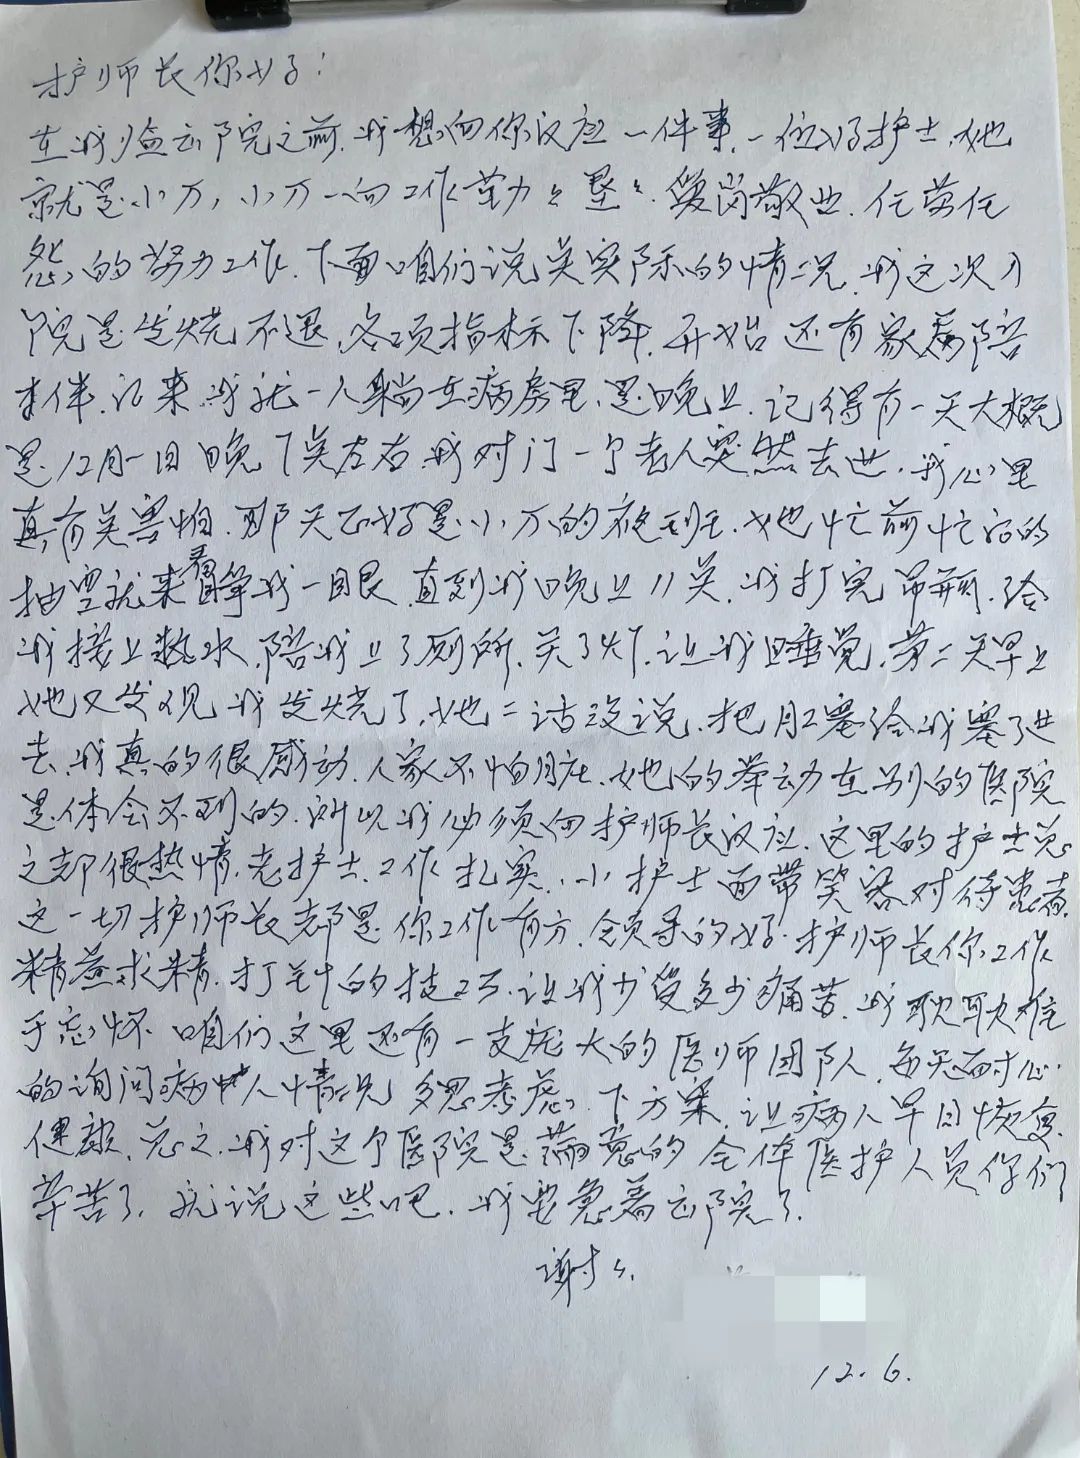 护师长你好：
在我临出院之前，我想向你反应一件事，一位好护士，她
就是小万，小万一向工作勤力勤垦垦，爱岗敬业，任劳任
怨的努力工作，下面咱们说点实际的情况，我这次入
院是发烧不退，各项指标下降，开始还有家属陪
伴，后来我就一人躺在病房里，是晚上，记得有一天大概
是12月1日晚7点左右我对门一个老人突然去世，我心里
真有点害怕，那天正好是小万的夜班，她忙前忙后的
抽空就来看我一眼，直到我晚上11点，我打完吊瓶，给
我接上热水，陪我上了厕所，关了灯，让我睡觉，第二天早上
她又发现我发烧了，她二话没说，把肛塞给我塞了进
去，我真的很感动，人家不怕脏，她的举动在别的医院
是体会不到的，所以我必须向护师长反应，这里的护士总
之都很热情，老护士工作扎实，小护士面带笑容对待患者
这一切护师长都是你工作有方，领导的好，护师长你工作
精益求精，打针的技巧，让我少受多少痛苦，我耿耿难
于忘怀 咱们这里还有一支庞大的医师团队，每天面对心
的询问病人情况 多思考虑，下方案，让病人早日恢复
健康，总之，我对这个医院是满意的 全体医护人员你们
辛苦了，就说这些吧，我要急着出院了，
谢谢，
12.6.